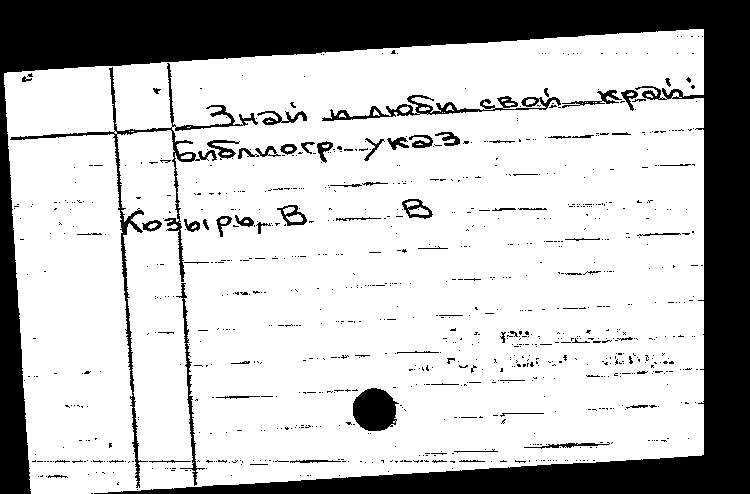 Знай и люби свой край:
Библиогр. указ.
Козырь, В В